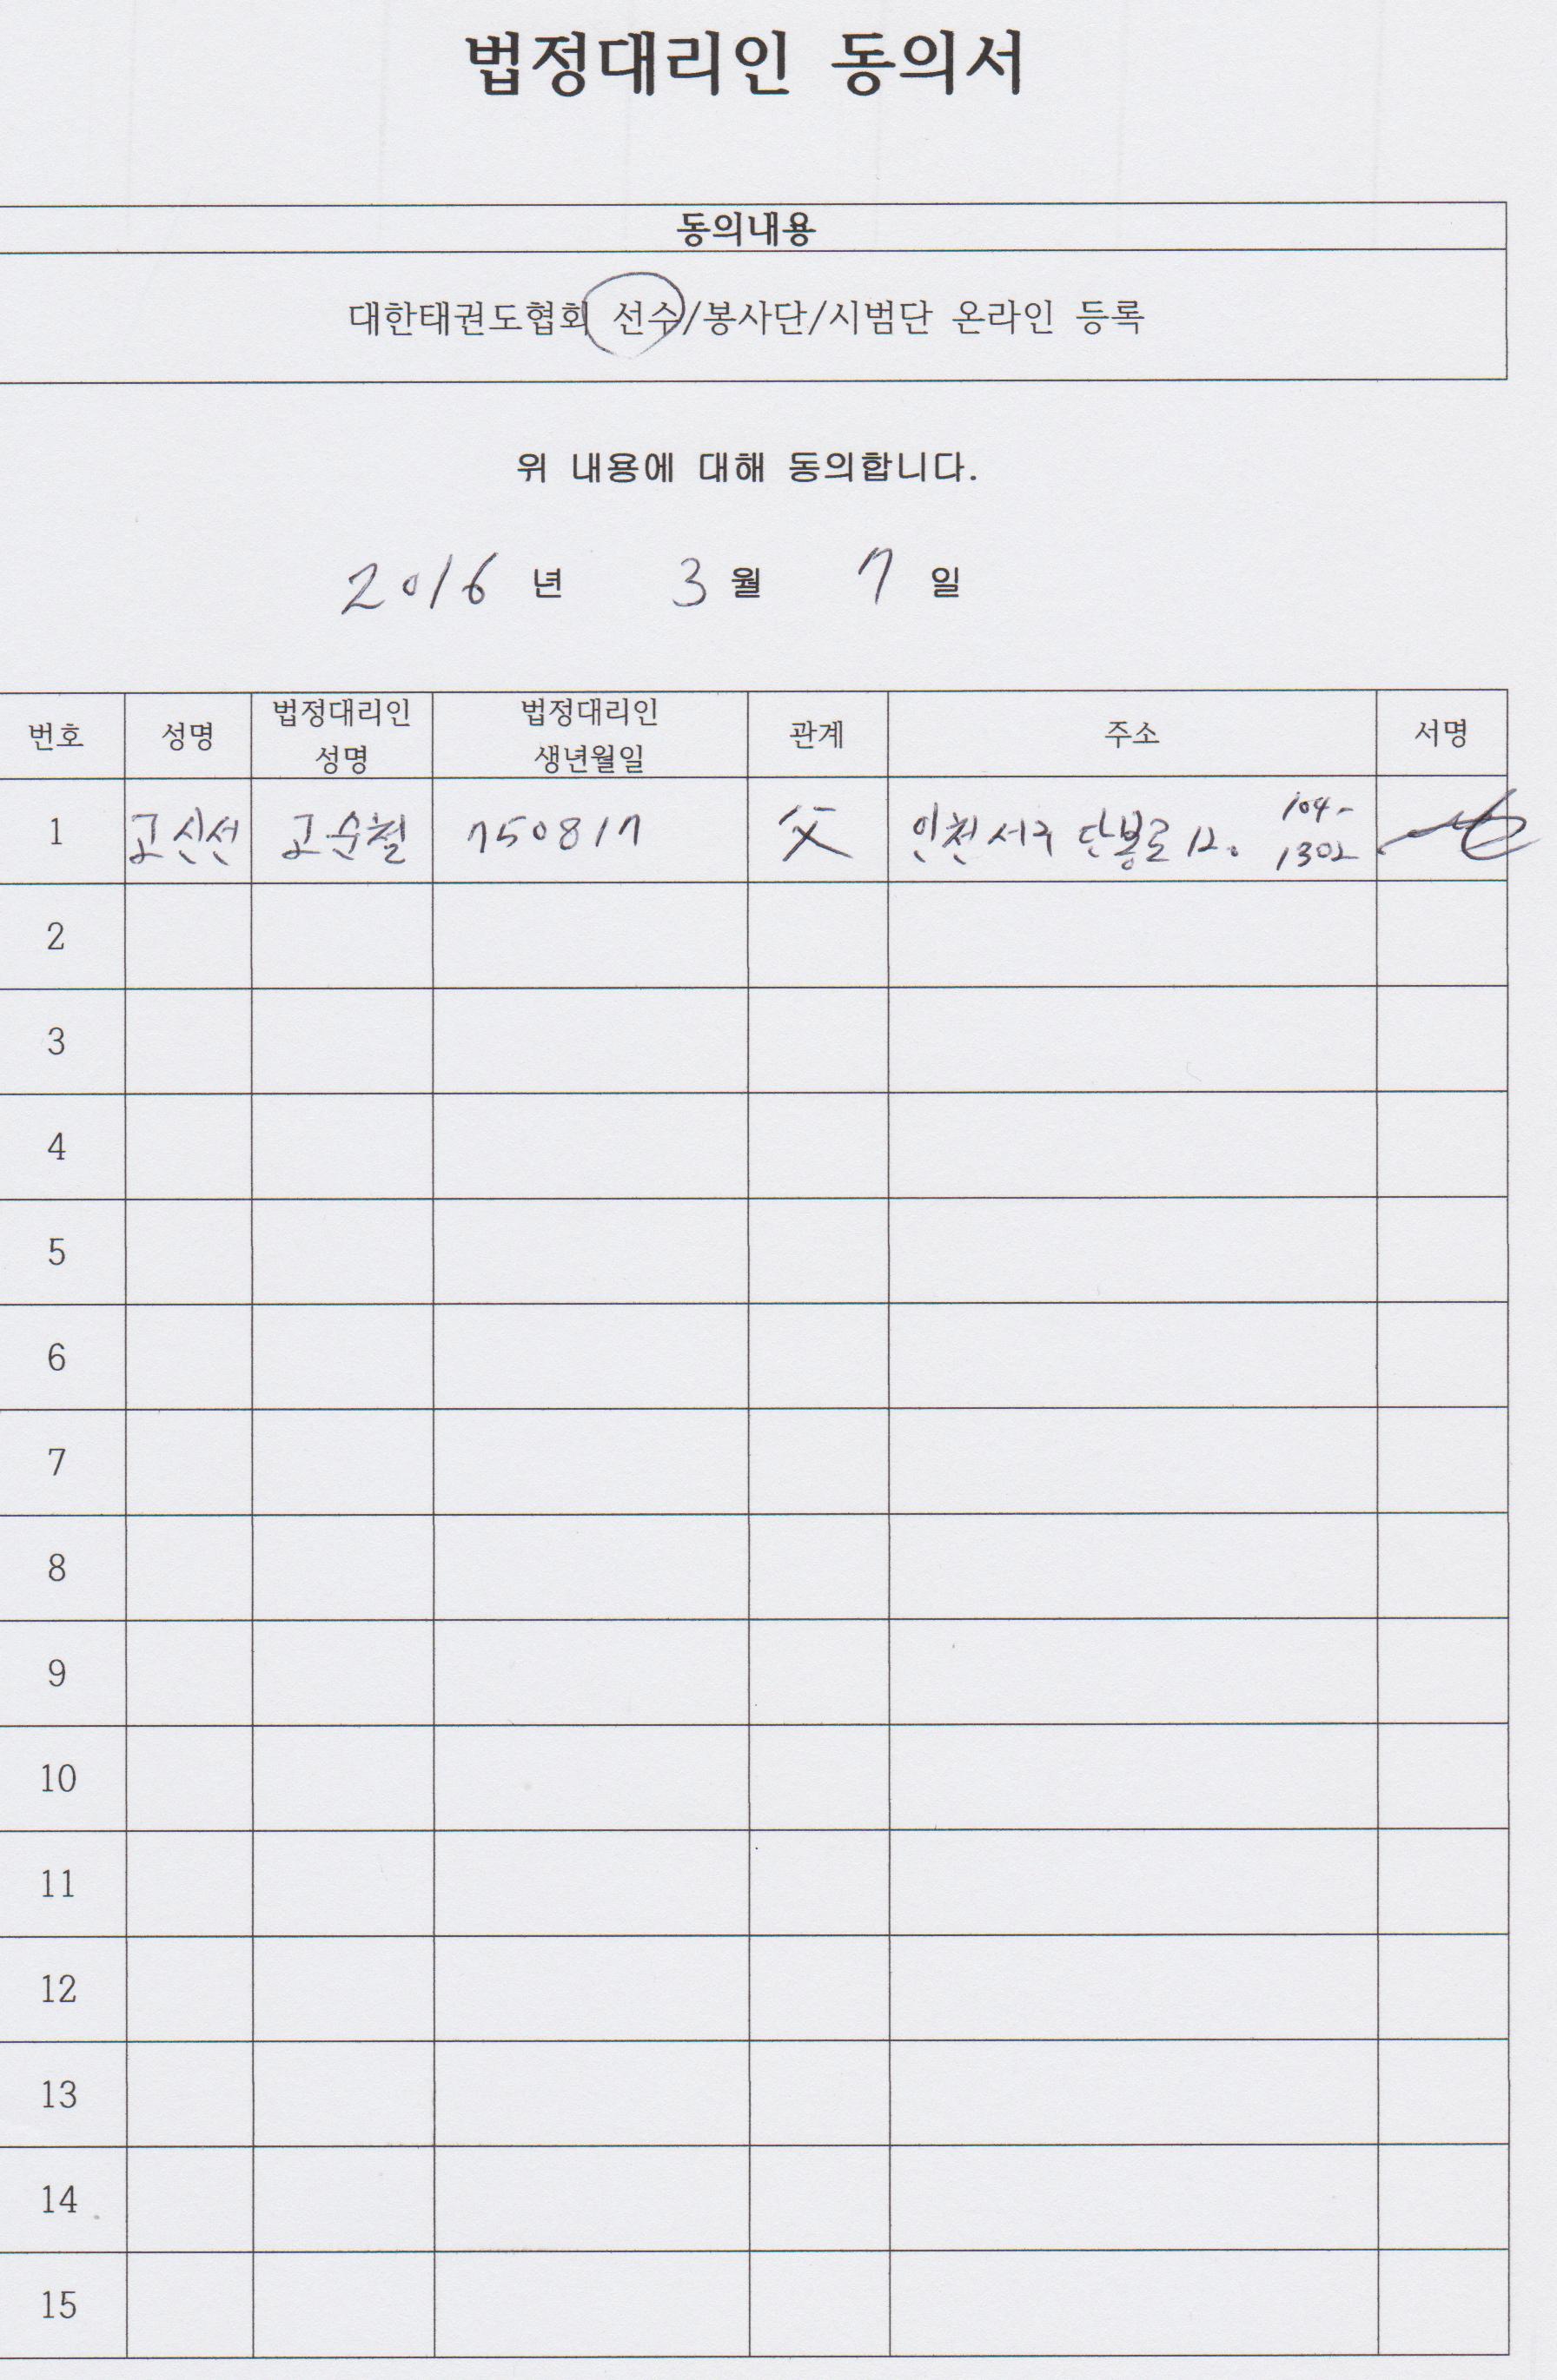 법정대리인 동의서
동의내용
대한태권도협회 선수/봉사단/시범단 온라인 등록
위 내용에 대해 동의합니다.
2016 년 3 월 7 일
번호 성명 법정대리인 성명 법정대리인 생년월일 관계 주소 서명
1 고신선 고순철 750817 父 인천 서구 단봉로 12. 104-1302
2
3
4
5
6
7
8
9
10
11
12
13
14
15